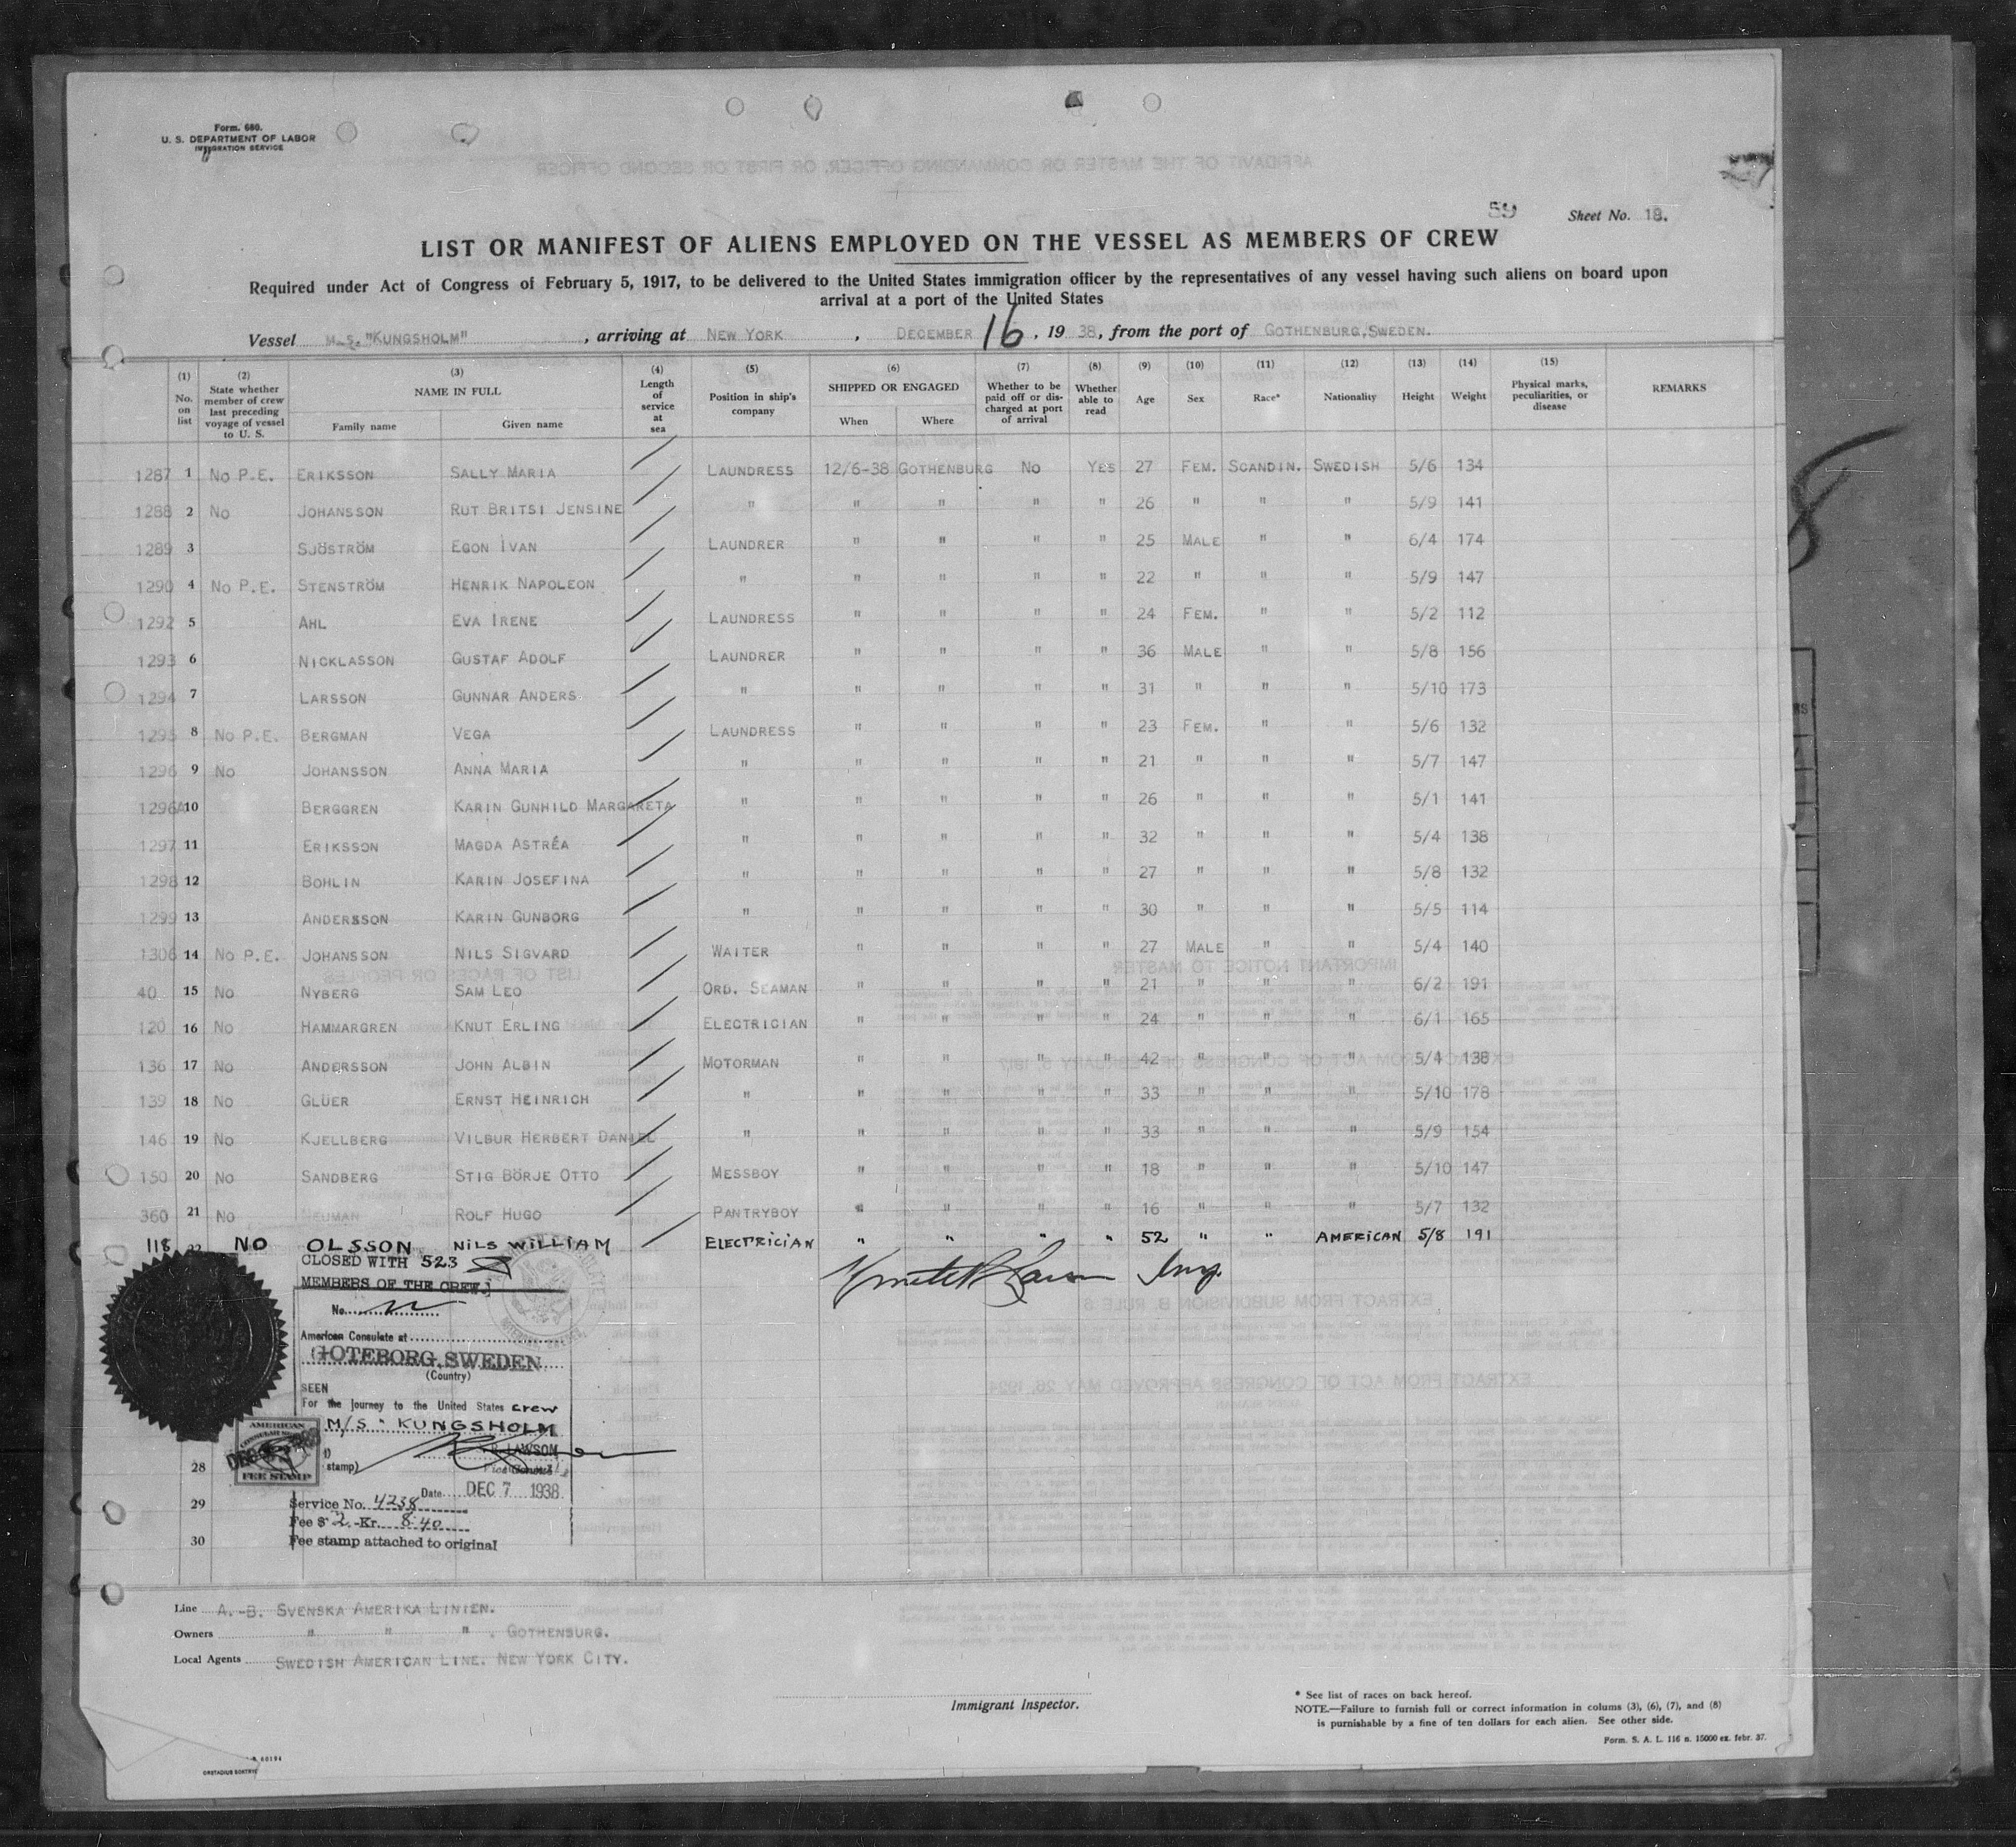 Form. 680.
U. S. DEPARTMENT OF LABOR
IMMIGRATION SERVICE
59
Sheet No. 18.
LIST OR MANIFEST OF ALIENS EMPLOYED ON THE VESSEL AS MEMBERS OF CREW
Required under Act of Congress of February 5, 1917, to be delivered to the United States immigration officer by the representatives of any vessel having such aliens on board upon
arrival at a port of the United States
Vessel M.S. "KUNGSHOLM" , arriving at NEW YORK , DECEMBER 16 , 19 38, from the port of GOTHENBURG, SWEDEN.
(1) No. on list
(2) State whether member of crew last preceding voyage of vessel to U. S.
(3) NAME IN FULL
Family name
Given name
(4) Length of service at sea
(5) Position in ship's company
(6) SHIPPED OR ENGAGED
When
Where
(7) Whether to be paid off or discharged at port of arrival
(8) Whether able to read
(9) Age
(10) Sex
(11) Race*
(12) Nationality
(13) Height
(14) Weight
(15) Physical marks, peculiarities, or disease
REMARKS
1287 1 No P.E. ERIKSSON SALLY MARIA LAUNDRESS 12/6-38 GOTHENBURG No YES 27 FEM. SCANDIN. SWEDISH 5/6 134
1288 2 No JOHANSSON RUT BRITSI JENSINE " " " " " 26 " " " 5/9 141
1289 3 SJÖSTRÖM EGON IVAN LAUNDRER " " " " 25 MALE " " 6/4 174
1290 4 No P.E. STENSTRÖM HENRIK NAPOLEON " " " " " 22 " " " 5/9 147
1292 5 AHL EVA IRENE LAUNDRESS " " " " 24 FEM. " " 5/2 112
1293 6 NICKLASSON GUSTAF ADOLF LAUNDRER " " " " 36 MALE " " 5/8 156
1294 7 LARSSON GUNNAR ANDERS " " " " " 31 " " " 5/10 173
1295 8 No P.E. BERGMAN VEGA LAUNDRESS " " " " 23 FEM. " " 5/6 132
1296 9 No JOHANSSON ANNA MARIA " " " " " 21 " " " 5/7 147
1296A 10 BERGGREN KARIN GUNHILD MARGARETA " " " " " 26 " " " 5/1 141
1297 11 ERIKSSON MAGDA ASTRÉA " " " " " 32 " " " 5/4 138
1298 12 BOHLIN KARIN JOSEFINA " " " " " 27 " " " 5/8 132
1299 13 ANDERSSON KARIN GUNBORG " " " " " 30 " " " 5/5 114
1306 14 No P.E. JOHANSSON NILS SIGVARD WAITER " " " " 27 MALE " " 5/4 140
40 15 No NYBERG SAM LEO ORD. SEAMAN " " " " 21 " " " 6/2 191
120 16 No HAMMARGREN KNUT ERLING ELECTRICIAN " " " " 24 " " " 6/1 165
136 17 No ANDERSSON JOHN ALBIN MOTORMAN " " " " 42 " " " 5/4 138
139 18 No GLÜER ERNST HEINRICH " " " " " 33 " " " 5/10 178
146 19 No KJELLBERG VILBUR HERBERT DANIEL " " " " " 33 " " " 5/9 154
150 20 No SANDBERG STIG BÖRJE OTTO MESSBOY " " " " 18 " " " 5/10 147
360 21 No NEUMAN ROLF HUGO PANTRYBOY " " " " 16 " " " 5/7 132
118 22 NO OLSSON NILS WILLIAM ELECTRICIAN " " " " 52 " " AMERICAN 5/8 191
CLOSED WITH 523
MEMBERS OF THE CREW.
No.
American Consulate at
GOTEBORG, SWEDEN
(Country)
SEEN
For the journey to the United States crew
M/S "KUNGSHOLM
LAWSON
Vice Consul
AMERICAN
CONSULAR SERVICE
FEE STAMP
stamp)
Date DEC 7 1938
28
29
30
Service No. 4238
Fee $ 2.-Kr. 8:40
Fee stamp attached to original
Line A.-B. SVENSKA AMERIKA LINIEN.
Owners " " " . GOTHENBURG.
Local Agents SWEDISH AMERICAN LINE. NEW YORK CITY.
Immigrant Inspector.
* See list of races on back hereof.
NOTE.—Failure to furnish full or correct information in colums (3), (6), (7), and (8)
is punishable by a fine of ten dollars for each alien. See other side.
Form. S. A. L. 116 n. 15000 ex. febr. 37.